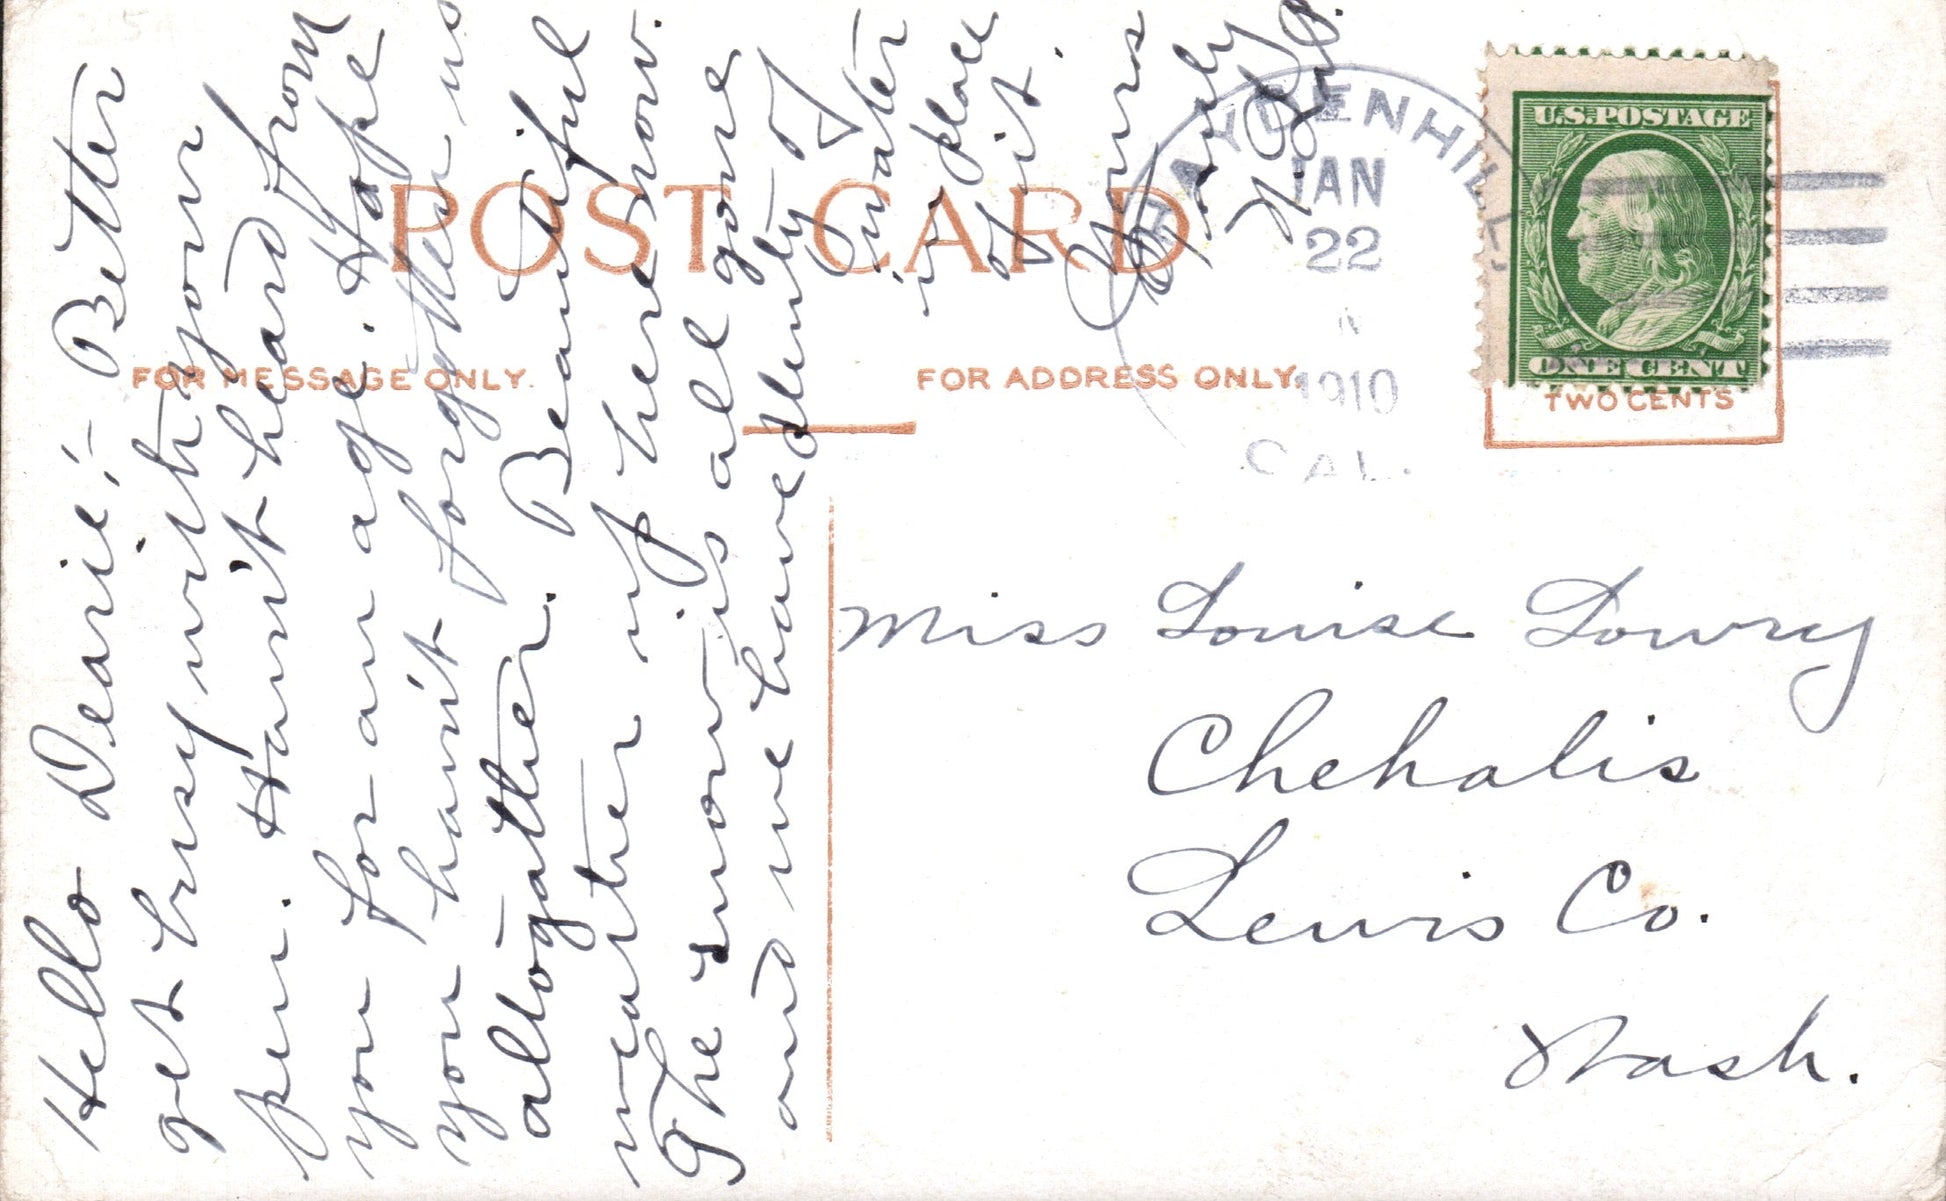 POST CARD
FOR MESSAGE ONLY.
FOR ADDRESS ONLY.
Hello Dearie:- Better
get busy with your
pen. Hav'nt heard from
you for an age. Hope
you hav'nt forgotten us
alltogather. Beautiful
weather up here now.
The snow is all gone
and we have plenty of
water
in place
of it.
Yours
Early
HAYDENHILL
JAN
22
1910
CAL.
U.S.POSTAGE
ONE CENT
TWO CENTS
Miss Louise Lowry
Chehalis
Lewis Co.
Wash.